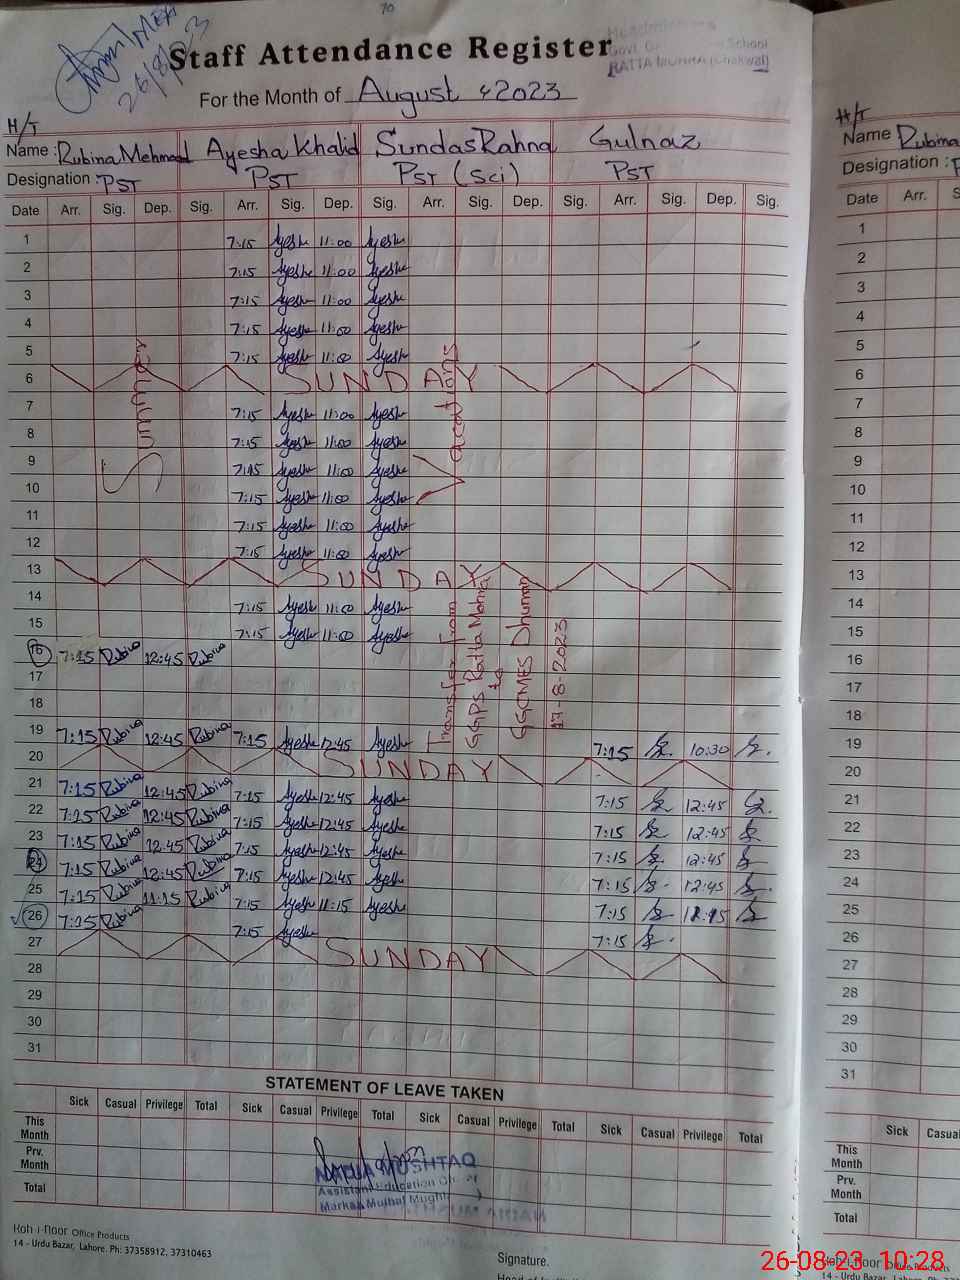 70
MEA
26/8/23
Staff Attendance Register
School
RATTA MOHRA (Chakwal)
For the Month of August 2023
H/T
Name : Rubina Mehmood Ayesha Khalid Sundas Rahna Gulnaz
Designation : PST PST PST (Sci) PST
Date Arr. Sig. Dep. Sig. Arr. Sig. Dep. Sig. Arr. Sig. Dep. Sig. Arr. Sig. Dep. Sig.
1 7:15 Ayesha 11:00 Ayesha
2 7:15 Ayesha 11:00 Ayesha
3 7:15 Ayesha 11:00 Ayesha
4 7:15 Ayesha 11:00 Ayesha
5 7:15 Ayesha 11:00 Ayesha
6 SUNDAY
7 7:15 Ayesha 11:00 Ayesha
8 7:15 Ayesha 11:00 Ayesha
9 7:15 Ayesha 11:00 Ayesha
10 7:15 Ayesha 11:00 Ayesha
11 7:15 Ayesha 11:00 Ayesha
12 7:15 Ayesha 11:00 Ayesha
Summer
Vacations
13 SUNDAY
14 7:15 Ayesha 11:00 Ayesha
15 7:15 Ayesha 11:00 Ayesha
16 7:15 Rubina 12:45 Rubina
17
18
Transfer from
GGPS Ratta Mohra
to
GGCMES Dhuman
17-8-2023
19 7:15 Rubina 12:45 Rubina 7:15 Ayesha 12:45 Ayesha 7:15 10:30
20 SUNDAY
21 7:15 Rubina 12:45 Rubina 7:15 Ayesha 12:45 Ayesha 7:15 12:45
22 7:15 Rubina 12:45 Rubina 7:15 Ayesha 12:45 Ayesha 7:15 12:45
23 7:15 Rubina 12:45 Rubina 7:15 Ayesha 12:45 Ayesha 7:15 12:45
24 7:15 Rubina 12:45 Rubina 7:15 Ayesha 12:45 Ayesha 7:15 12:45
25 7:15 Rubina 11:15 Rubina 7:15 Ayesha 11:15 Ayesha 7:15 11:15
26 7:15 Rubina 7:15 Ayesha 7:15
27 SUNDAY
28
29
30
31
STATEMENT OF LEAVE TAKEN
Sick Casual Privilege Total Sick Casual Privilege Total Sick Casual Privilege Total Sick Casual Privilege Total
This Month
Prv. Month
Total
MUSHTAQ
Assistant Education Officer
Markaz Mulhal Mughlan
Koh-i-Noor Office Products
14 - Urdu Bazar, Lahore. Ph: 37358912, 37310463
Signature.
H/T
Name Rubina
Designation :
Date Arr.
1
2
3
4
5
6
7
8
9
10
11
12
13
14
15
16
17
18
19
20
21
22
23
24
25
26
27
28
29
30
31
Sick Casual
This Month
Prv. Month
Total
Koh-i-Noor Office Products
14 - Urdu Bazar, Lahore
26-08-23 10:28